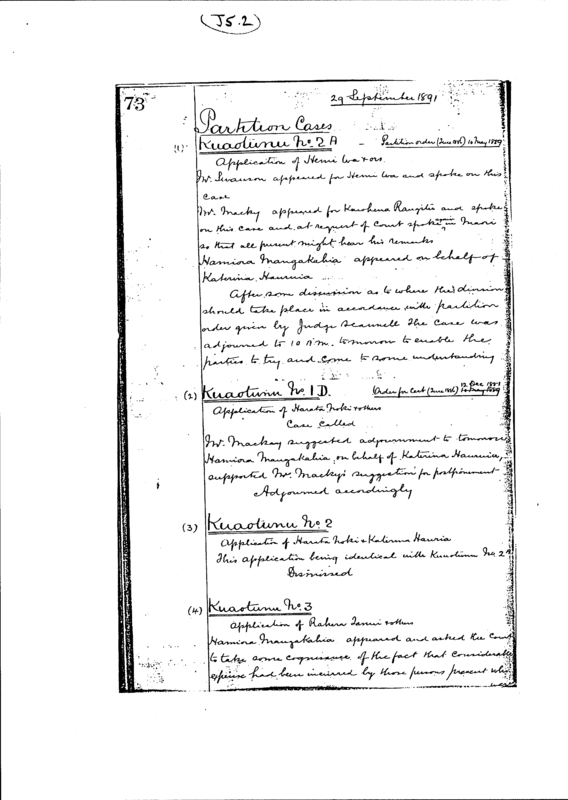 (J5.2)
73
29 September 1891
Partition Cases
(1) Kuaotunu No. 2A - Partition order (June 1886) 10 May 1889
Application of Hemi Wa & ors.
Mr. Swanson appeared for Hemi Wa and spoke on this
case
Mr. Macky appeared for Karohena Rangitu and spoke
on this case and at request of Court spoke in Maori
so that all present might hear his remarks
Hamiora Mangakahia appeared on behalf of
Katerina Hauruia
After some discussion as to where the division
should take place in accordance with partition
order given by Judge Scannell the case was
adjourned to 10 A.M. tomorrow to enable the
parties to try and come to some understanding
(2) Kuaotunu No. 1D. Order for Cert 10 May 1889
Application of Harata Noki & others
Case called
Mr. Mackay suggested adjournment to tomorrow
Hamiora Mangakahia, on behalf of Katerina Hauruia,
supported Mr. Macky's suggestion for postponement
Adjourned accordingly
(3) Kuaotunu No. 2
Application of Harata Noki & Katerina Hauria
This application being identical with Kuaotunu No. 2A
Dismissed
(4) Kuaotunu No. 3
Application of Rahera Tanui & others
Hamiora Mangakahia appeared and asked the Court
to take some cognisance of the fact that considerable
expense had been incurred by those persons present who